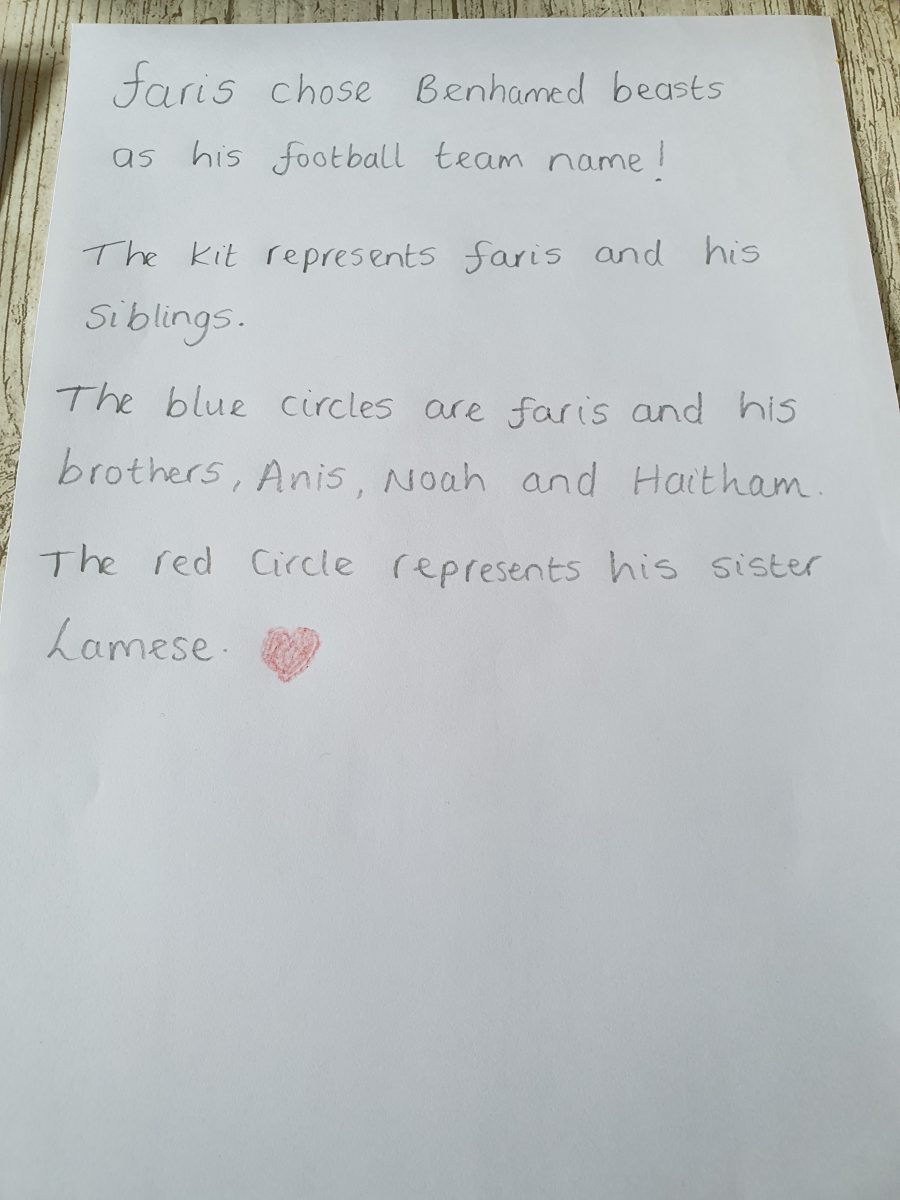 faris chose Benhamed beasts
as his football team name!
The kit represents faris and his
siblings.
The blue circles are faris and his
brothers, Anis, Noah and Haitham.
The red circle represents his sister
Lamese.